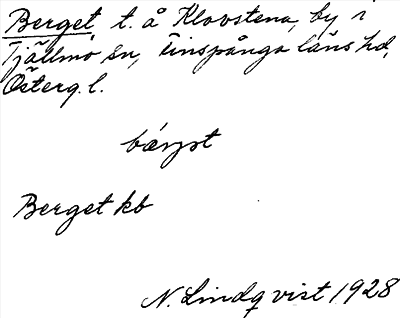 Berget, t. å Klovstena, by i
Tjällmo sn, Finspånga läns hd,
Österg. l.
Berget kb
N. Lindqvist 1928